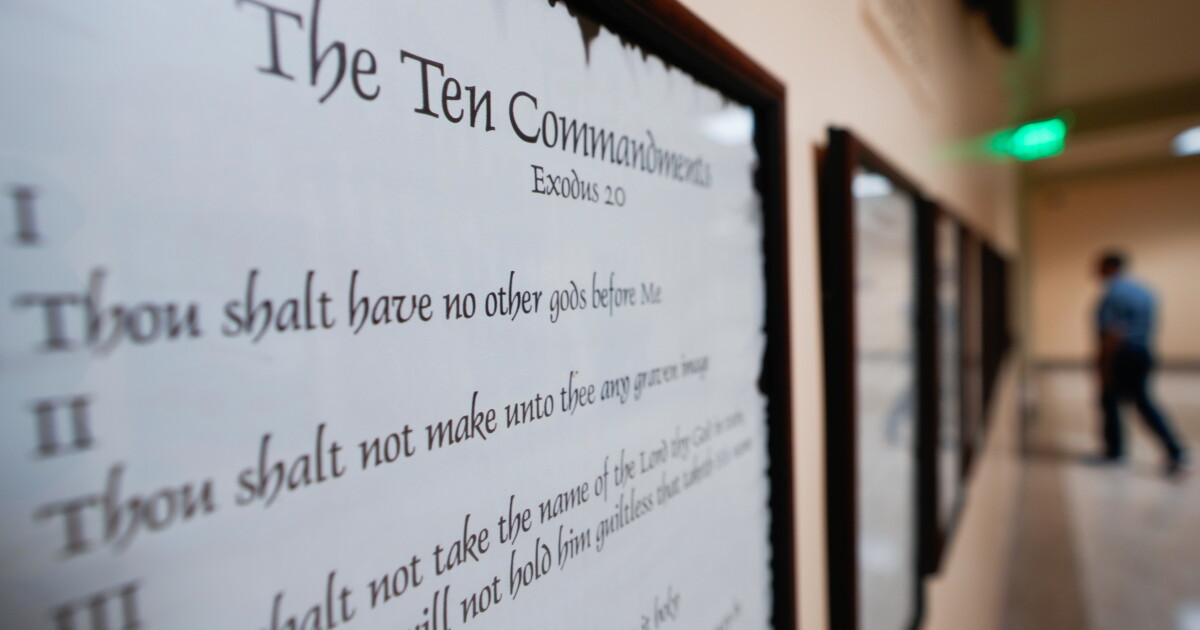 The Ten Commandments
Exodus 20
I
Thou shalt have no other gods before Me
II
Thou shalt not make unto thee any graven image
III
shalt not take the name of the Lord thy God in vain,
will not hold him guiltless that taketh
holy